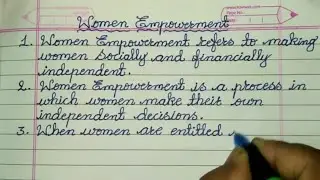 Women Empowerment
1. Women Empowerment refers to making
women socially and financially
independent.
2. Women Empowerment is a process in
which women make their own
independent decisions.
3. When women are entitled